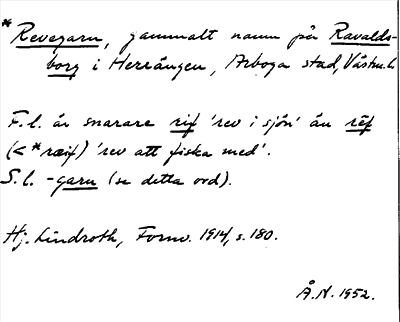 *Revegarn, gammalt namn på Ravalds-
borg i Herrängen, Arboga stad, Västm.l.
F.l. är snarare rif 'rev i sjön' än rēf
(<*raeif) 'rev att fiska med'.
S.l. -garn (se detta ord).
Hj. Lindroth, Fornv. 1914, s. 180.
Å.N. 1952.